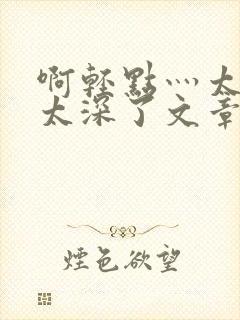 啊輕點灬太
太深了文章
煙色欲望